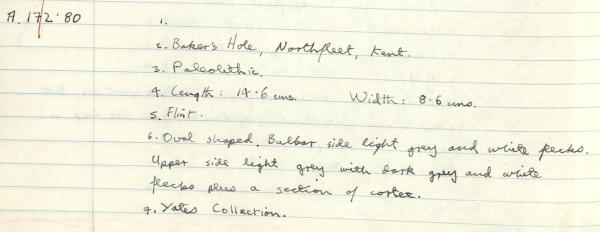 A.172'80
1.
2. Baker's Hole, Northfleet, Kent.
3. Paleolithic.
4. Length: 14.6 cms. Width: 8.6 cms.
5. Flint.
6. Oval shaped. Bulbar side light grey and white flecks.
Upper side light grey with dark grey and white
flecks plus a section of cortex.
7. Yates Collection.